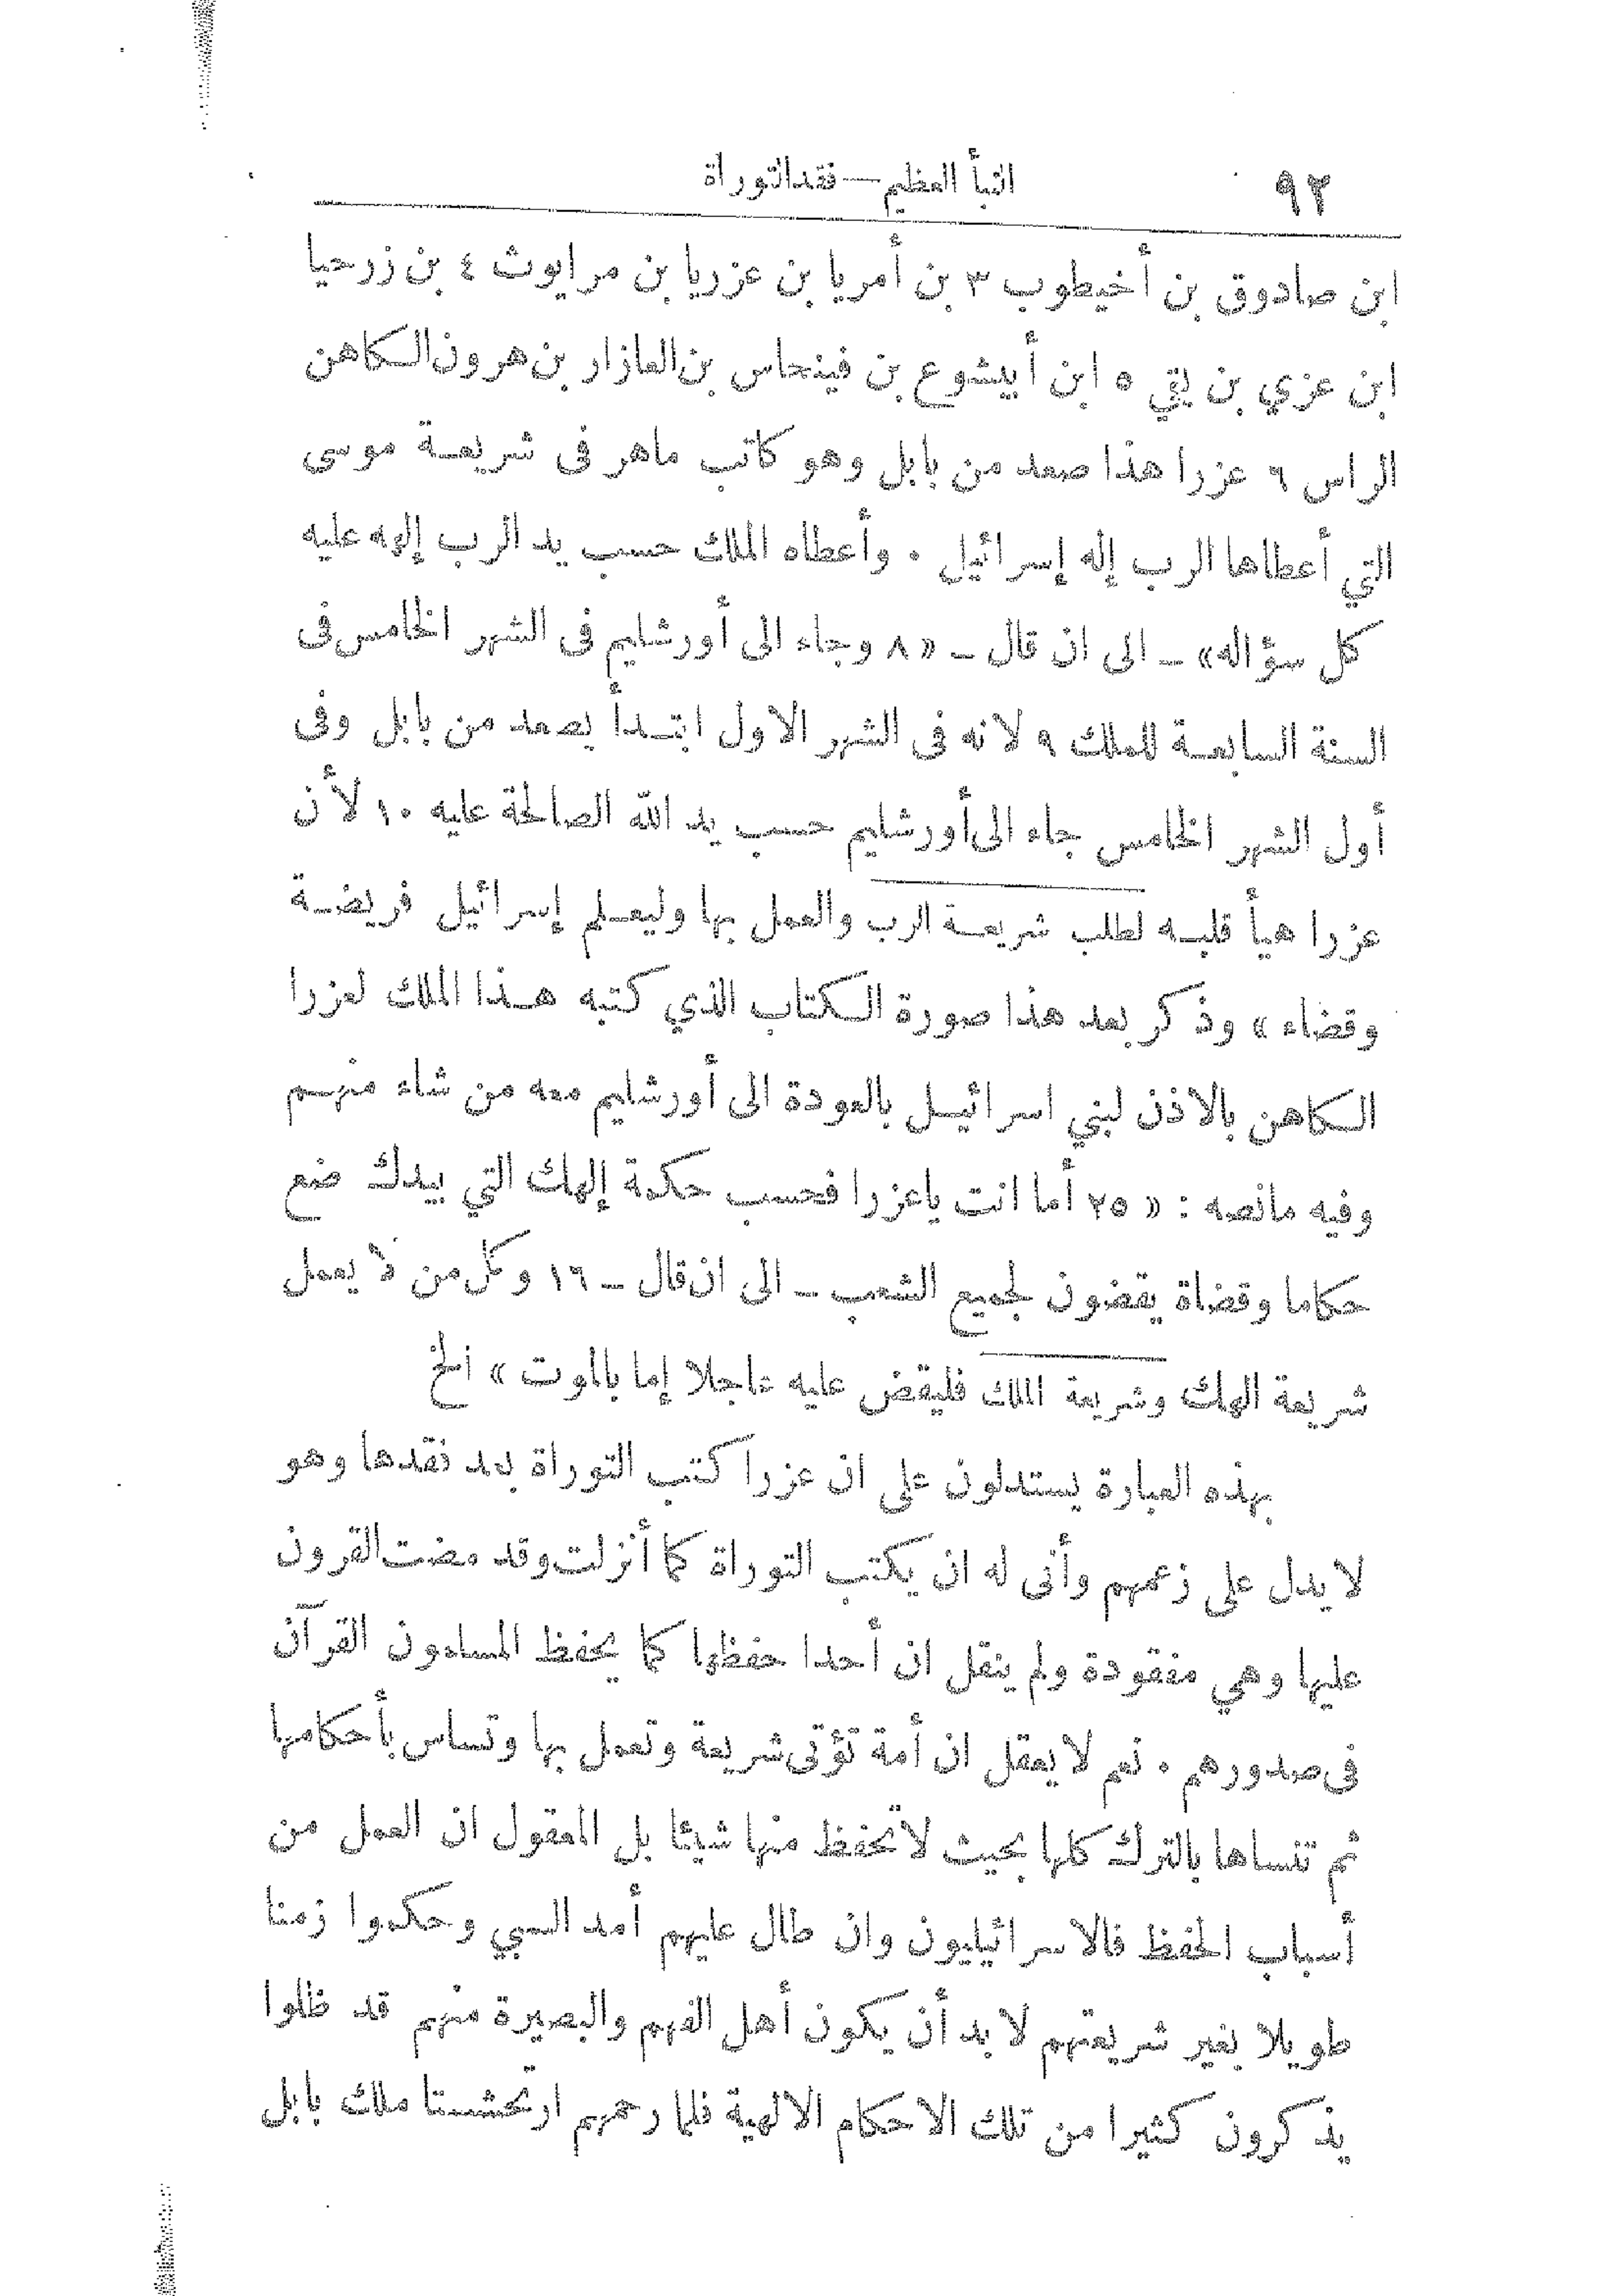 ٩٢
النبأ العظيم — فقد التوراة
ابن صادوق بن أخيطوب ٣ بن أمريا بن عزريا بن مرايوث ٤ بن زرحيا
ابن عزي بن بقي ٥ ابن أبيشوع بن فينحاس بن العازار بن هرون الكاهن
الراس ٦ عزرا هذا صعد من بابل وهو كاتب ماهر فى شريعة موسى
التي أعطاها الرب إله إسرائيل ٠ وأعطاه الملك حسب يد الرب إلهه عليه
كل سؤاله» ـ الى ان قال ـ «٨ وجاء الى أورشليم فى الشهر الخامس فى
السنة السابعة للملك ٩ لانه فى الشهر الاول ابتدأ يصعد من بابل وفى
أول الشهر الخامس جاء الى أورشليم حسب يد الله الصالحة عليه ١٠ لأن
عزرا هيأ قلبه لطلب شريعة الرب والعمل بها وليعلم إسرائيل فريضة
وقضاء» وذكر بعد هذا صورة الكتاب الذي كتبه هذا الملك لعزرا
الكاهن بالاذن لبني اسرائيل بالعودة الى أورشليم معه من شاء منهم
وفيه مانصه : «٢٥ أما انت ياعزرا فحسب حكمة إلهك التي بيدك ضع
حكاما وقضاة يقضون لجميع الشعب ـ الى ان قال ـ ١٦ وكل من لا يعمل
شريعة الهك وشريعة الملك فليقض عليه عاجلا إما بالموت» الخ
بهذه العبارة يستدلون على ان عزرا كتب التوراة بعد فقدها وهو
لا يدل على زعمهم وأنى له ان يكتب التوراة كما أنزلت وقد مضت القرون
عليها وهي مفقودة ولم ينقل ان أحدا حفظها كما يحفظ المسلمون القرآن
فى صدورهم ٠ نعم لا يعقل ان أمة تؤتى شريعة وتعمل بها وتساس بأحكامها
ثم تنساها بالترك كلها بحيث لا تحفظ منها شيئا بل المعقول ان العمل من
أسباب الحفظ فالاسرائيليون وان طال عليهم أمد السبي وحكموا زمنا
طويلا بغير شريعتهم لا بد أن يكون أهل الفهم والبصيرة منهم قد ظلوا
يذكرون كثيرا من تلك الاحكام الالهية فلما رحمهم ارتحشستا ملك بابل